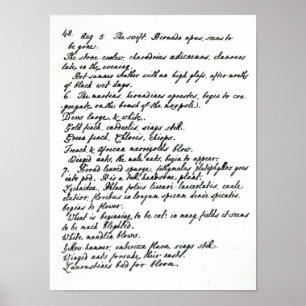 48. Aug 5 The swift, Hirundo apus, seems to
be gone.
The stone curlew, charadrius oedicnemus, clamours
late in the evening.
Hot summer weather with an high glass, after months
of black wet days.
6. The martins, hirundines agrestes, begin to con-
gregate on the of the maypole.
Dews large & white.
Gold finch, carduelis, sings still.
Green finch, Chloris, chirps.
French & African marrigolds blow.
Winged ants, the male ants, begin to appear.
7. Broad leaved spurge, tithymalus platyphyllos goes
into pod. It is a tall, handsome plant.
foliis lineari lanceolatis, caule
floribus in longam spicam dense spicatis,
begins to flower.
Wheat is beginning to be cut: in many fields it seems
to be much blighted.
White blows.
Yellow hammer, emberiza flava, sings still.
Winged ants forsake their nests.
Laurustines bud for bloom.